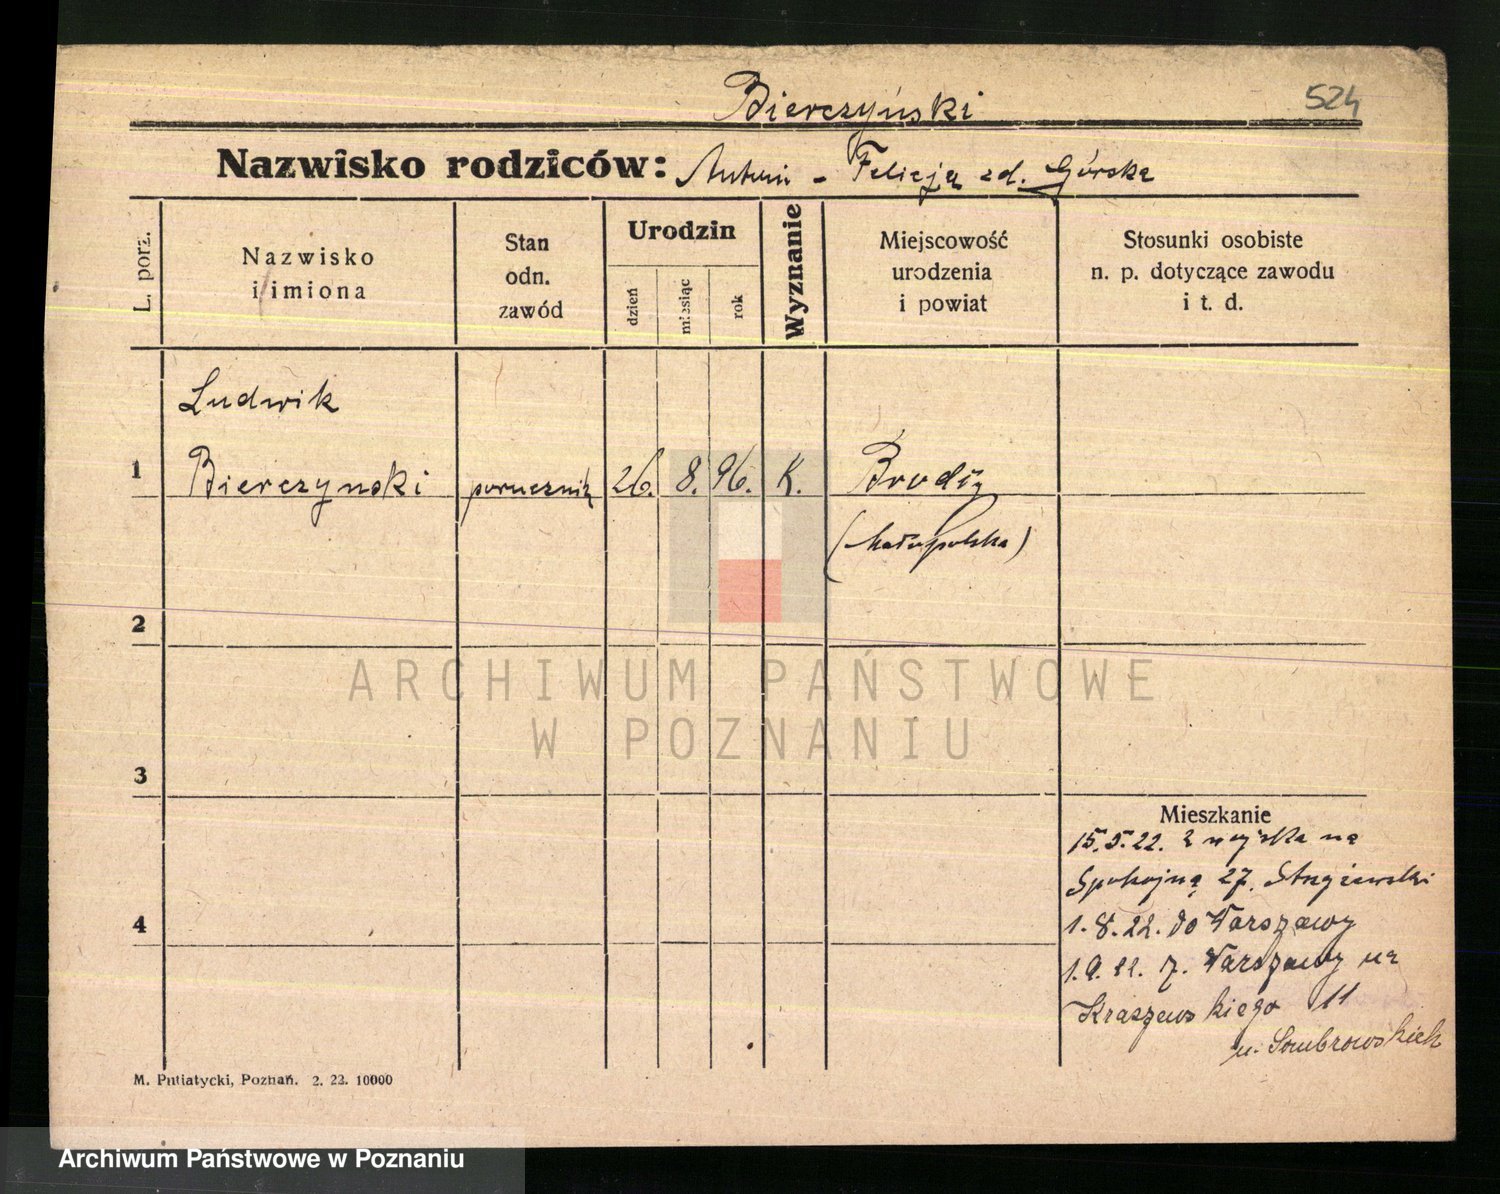 Bierczyński
524
Nazwisko rodziców: Antoni - Felicja zd. Górska
L. porz.
Nazwisko
i imiona
Stan
odn.
zawód
Urodzin
dzień
miesiąc
rok
Wyznanie
Miejscowość
urodzenia
i powiat
Stosunki osobiste
n. p. dotyczące zawodu
i t. d.
Ludwik
1 Bierczynski porucznik 26. 8. 96. K. Brody
(Małopolska)
2
3
4
Mieszkanie
15.5.22. z wojska na
Spokojną 27. Stryjewski
1.8.22. do Warszawy
1.9.22. z Warszawy na
Kraszewskiego 11
u. Dombrowskich
M. Putiatycki, Poznań. 2. 22. 10000
ARCHIWUM PAŃSTWOWE
W POZNANIU
Archiwum Państwowe w Poznaniu